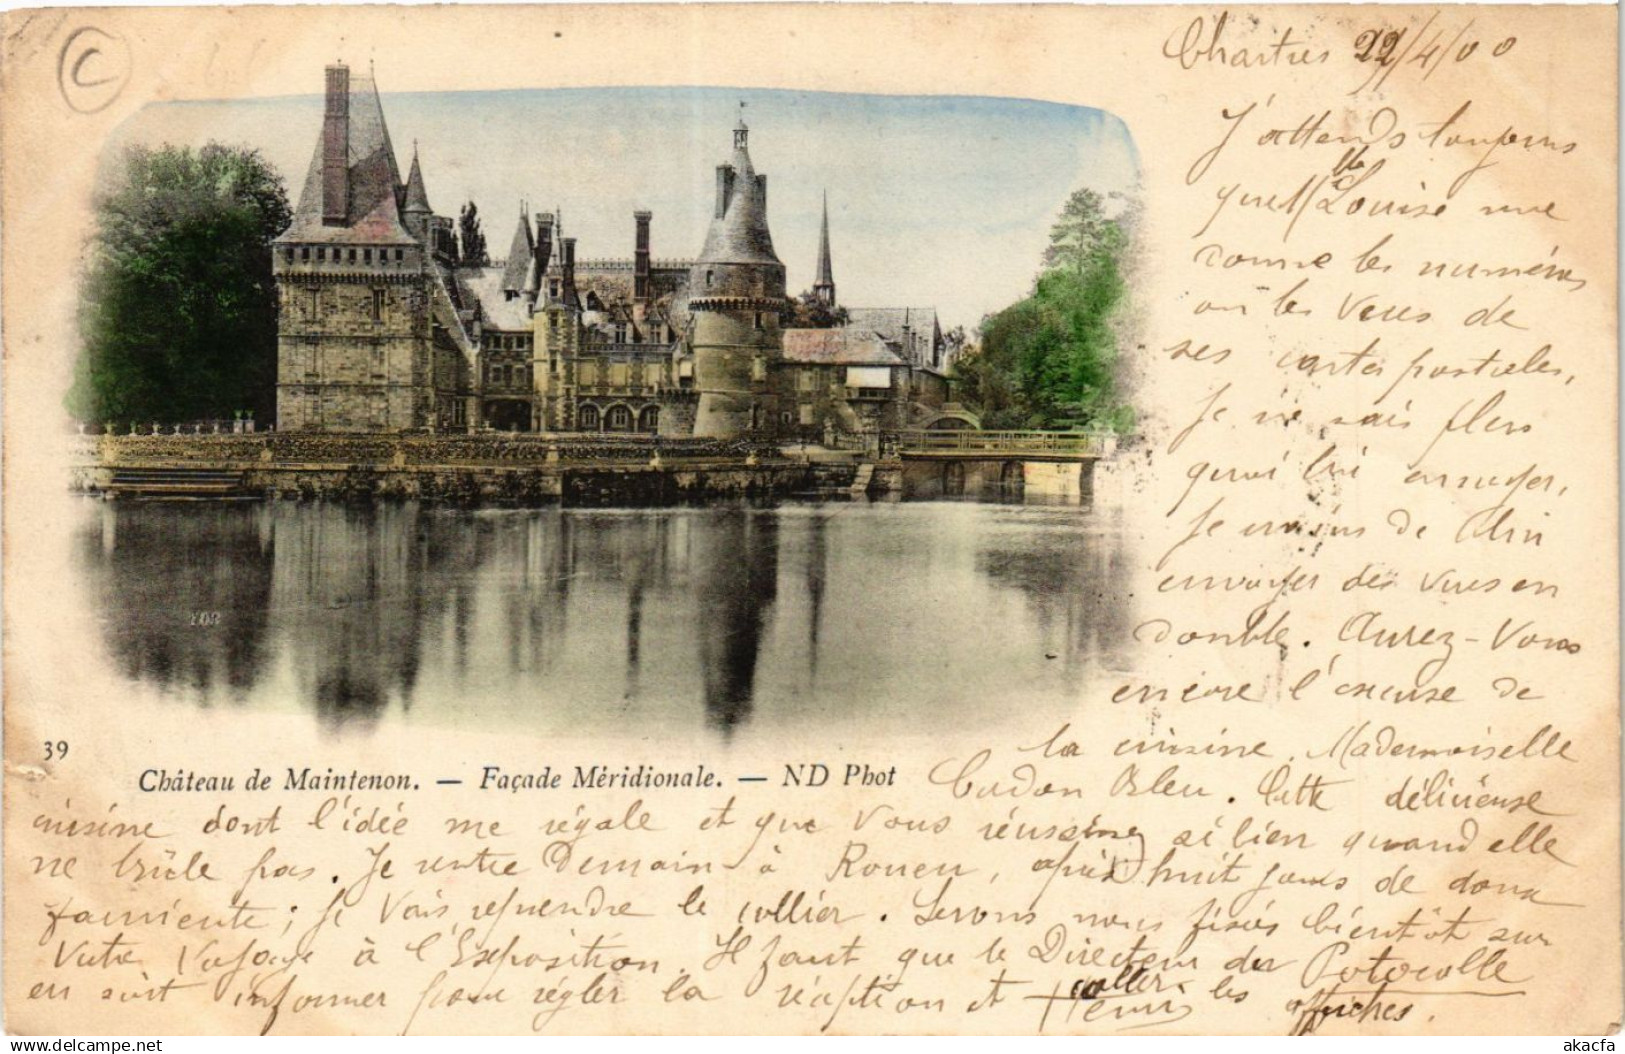 C
Chartres 22/4/00
J'attends toujours
que Mlle Louise me
donne les numéros
ou les vues de
ses cartes postales,
Je ne sais plus
quoi lui envoyer,
Je crains de lui
envoyer des vues en
double. Aurez-Vous
encore l'excuse de
la cuisine, Mademoiselle
39
Château de Maintenon. — Façade Méridionale. — ND Phot
Cordon Bleu. Cette délicieuse
cuisine dont l'idée me régale et que Vous réussissez si bien quand elle
ne brûle pas. Je rentre Demain à Rouen, après huit jours de doux
farniente; je Vais reprendre le collier. Serons nous fixés bientôt sur
Votre Voyage à l'Exposition. Il faut que le Directeur du Potocolle
en soit informer pour régler la réception et coller les affiches.
akacfa
delcampe.net